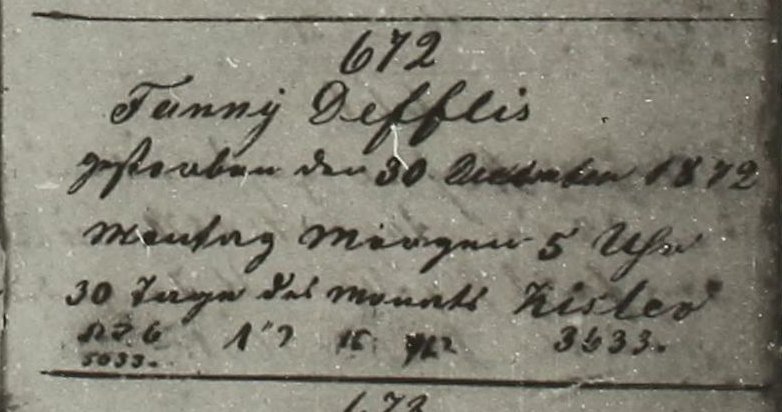 672
Fanny Defflis
gestorben den 30 Dezember 1872
Montag Morgen 5 Uhr
30 Tage des Monats Kislev
5633.
3633.
673